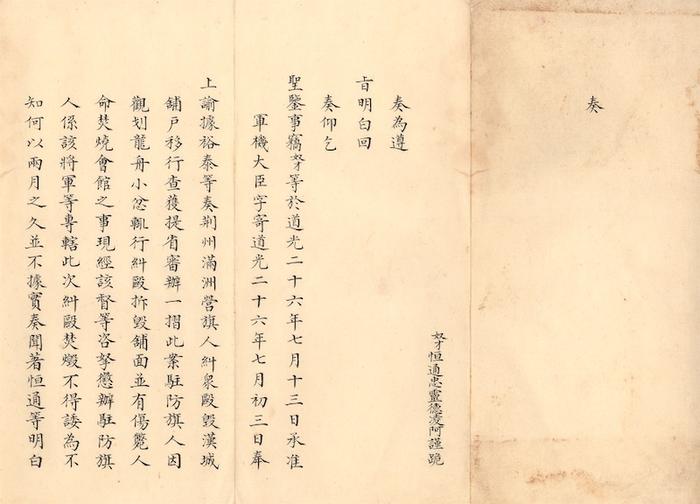 奏
奴才恒通忠靈德凌阿謹跪
奏為遵
㫖明白回
奏仰乞
聖鑒事竊奴才等於道光二十六年七月十三日承准
軍機大臣字寄道光二十六年七月初三日奉
上諭據裕泰等奏荆州滿洲營旗人糾衆毆毀漢城
舖户移行查獲提省審辦一摺此案駐防旗人因
觀划龍舟小忿輒行糾毆拆毀舖面並有傷斃人
命焚燒會館之事現經該督等咨拏懲辦駐防旗
人係該將軍等專轄此次糾毆焚燬不得諉為不
知何以兩月之久並不據實奏聞著恒通等明白